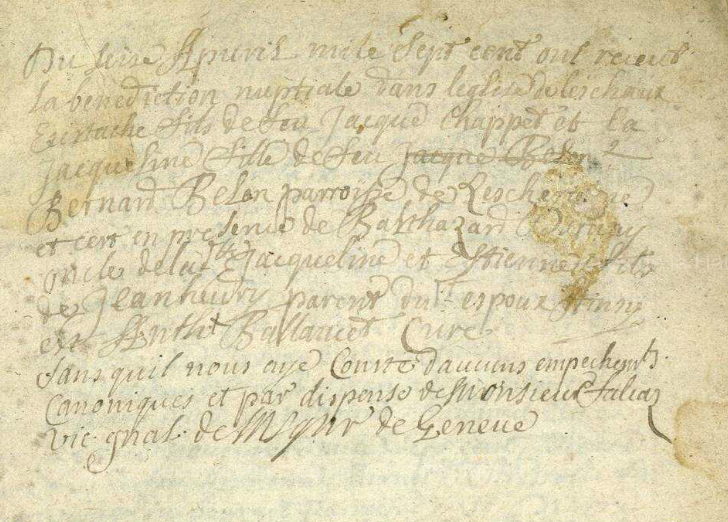 Du seize Apuril mile sept cent ont receut
la benediction nuptiale dans leglise de leschaux
Eustache fils de feu Jacque Chappet et la
Jacqueline fille de feu Jacque Belon
Bernard Belon parroisse de Lescheraine
et cert en presence de Balthazard
oncle de la ditte Jacqueline et Estienne fils
de Jean parent du dt espoux
est Ballancet Cure
sans quil nous aye Conste daucuns empechents
Canoniques et par dispense de Monsieur falcaz
vic gnal de Msgnr de Geneue